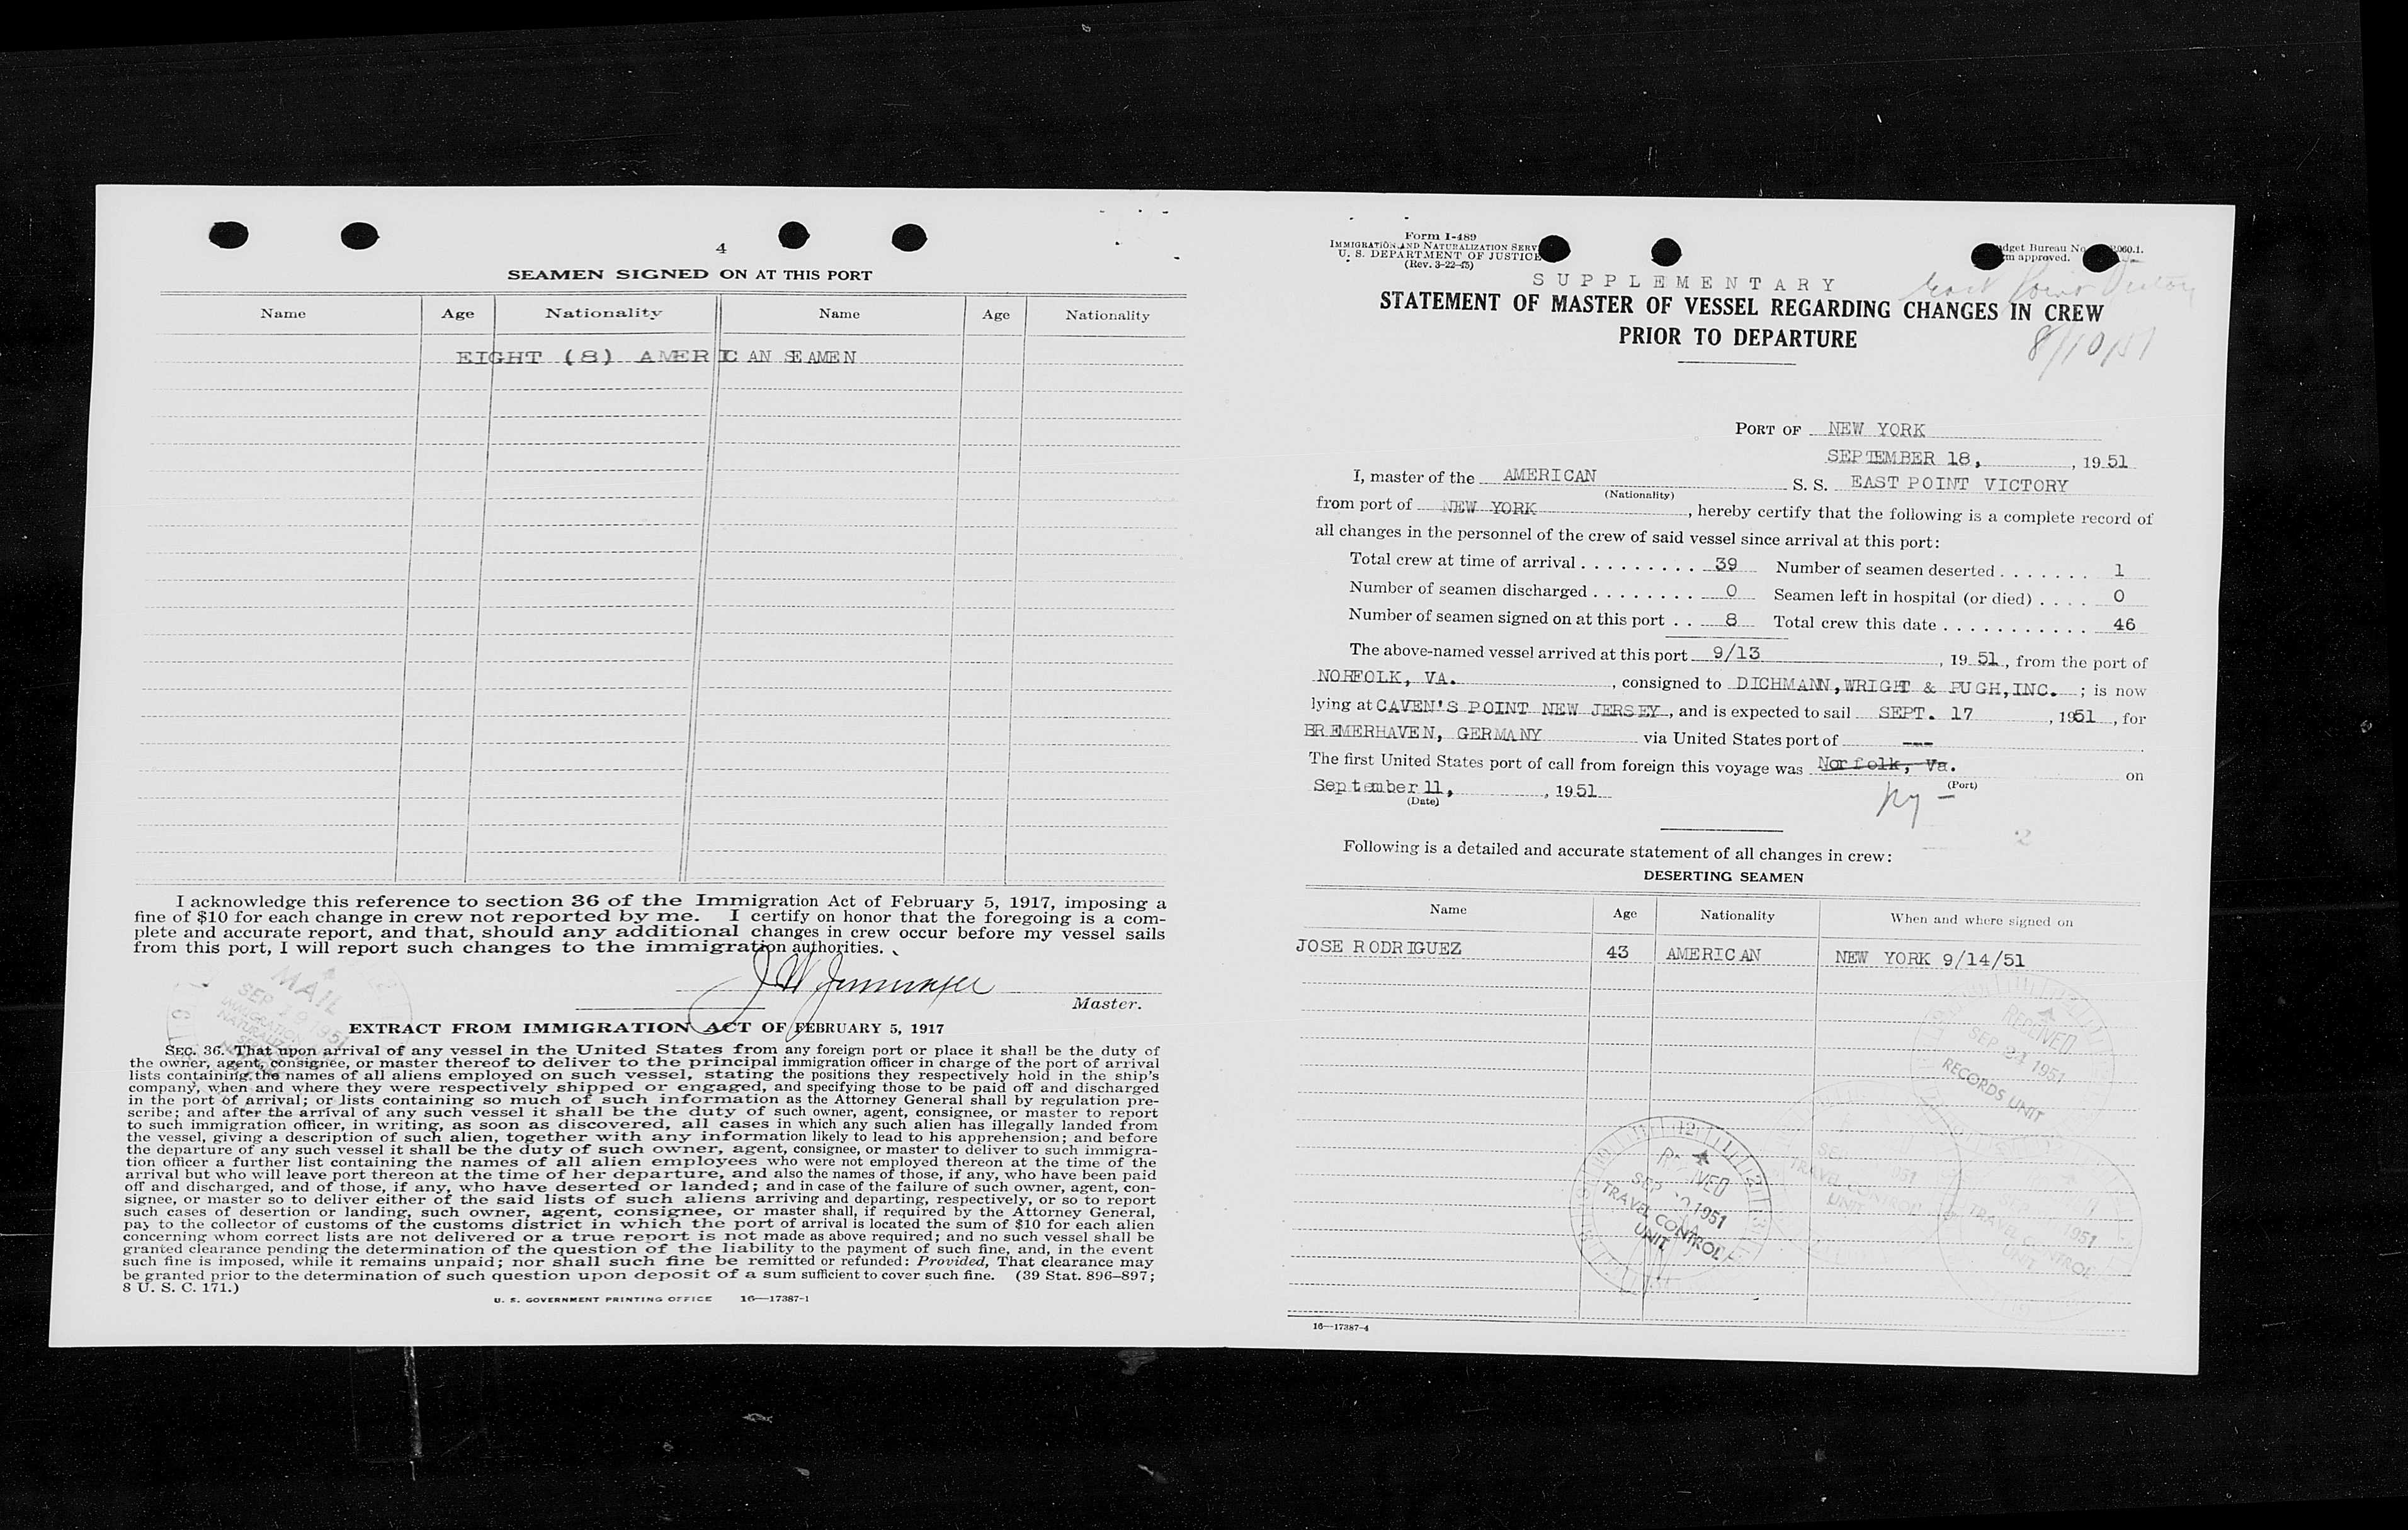 4
SEAMEN SIGNED ON AT THIS PORT
Name Age Nationality Name Age Nationality
EIGHT (8) AMERICAN SEAMEN
I acknowledge this reference to section 36 of the Immigration Act of February 5, 1917, imposing a
fine of $10 for each change in crew not reported by me. I certify on honor that the foregoing is a com-
plete and accurate report, and that, should any additional changes in crew occur before my vessel sails
from this port, I will report such changes to the immigration authorities.
Master.
MAIL
SEP 19 1951
EXTRACT FROM IMMIGRATION ACT OF FEBRUARY 5, 1917
SEC. 36. That upon arrival of any vessel in the United States from any foreign port or place it shall be the duty of
the owner, agent, consignee, or master thereof to deliver to the principal immigration officer in charge of the port of arrival
lists containing the names of all aliens employed on such vessel, stating the positions they respectively hold in the ship's
company, when and where they were respectively shipped or engaged, and specifying those to be paid off and discharged
in the port of arrival; or lists containing so much of such information as the Attorney General shall by regulation pre-
scribe; and after the arrival of any such vessel it shall be the duty of such owner, agent, consignee, or master to report
to such immigration officer, in writing, as soon as discovered, all cases in which any such alien has illegally landed from
the vessel, giving a description of such alien, together with any information likely to lead to his apprehension; and before
the departure of any such vessel it shall be the duty of such owner, agent, consignee, or master to deliver to such immigra-
tion officer a further list containing the names of all alien employees who were not employed thereon at the time of the
arrival but who will leave port thereon at the time of her departure, and also the names of those, if any, who have been paid
off and discharged, and of those, if any, who have deserted or landed; and in case of the failure of such owner, agent, con-
signee, or master so to deliver either of the said lists of such aliens arriving and departing, respectively, or so to report
such cases of desertion or landing, such owner, agent, consignee, or master shall, if required by the Attorney General,
pay to the collector of customs of the customs district in which the port of arrival is located the sum of $10 for each alien
concerning whom correct lists are not delivered or a true report is not made as above required; and no such vessel shall be
granted clearance pending the determination of the question of the liability to the payment of such fine, and, in the event
such fine is imposed, while it remains unpaid; nor shall such fine be remitted or refunded: Provided, That clearance may
be granted prior to the determination of such question upon deposit of a sum sufficient to cover such fine. (39 Stat. 896–897;
8 U. S. C. 171.)
U. S. GOVERNMENT PRINTING OFFICE 16—17387-1
Form I-489
IMMIGRATION AND NATURALIZATION SERV
U. S. DEPARTMENT OF JUSTICE
(Rev. 3-22-45)
dget Bureau No. 060.1.
m approved.
SUPPLEMENTARY
STATEMENT OF MASTER OF VESSEL REGARDING CHANGES IN CREW
PRIOR TO DEPARTURE
8/10/51
PORT OF NEW YORK
SEPTEMBER 18, , 19 51
I, master of the AMERICAN S. S. EAST POINT VICTORY
(Nationality)
from port of NEW YORK , hereby certify that the following is a complete record of
all changes in the personnel of the crew of said vessel since arrival at this port:
Total crew at time of arrival . . . . . . . . . 39 Number of seamen deserted . . . . . . . 1
Number of seamen discharged . . . . . . . . 0 Seamen left in hospital (or died) . . . . 0
Number of seamen signed on at this port . . 8 Total crew this date . . . . . . . . . . . . 46
The above-named vessel arrived at this port 9/13 , 19 51, from the port of
NORFOLK, VA. , consigned to DICHMANN,WRIGHT & PUGH,INC. ; is now
lying at CAVEN'S POINT NEW JERSEY, and is expected to sail SEPT. 17 , 1951 , for
BREMERHAVEN, GERMANY via United States port of ---
The first United States port of call from foreign this voyage was Norfolk, Va. on
(Port)
September 11, , 1951
(Date)
ny -
2
Following is a detailed and accurate statement of all changes in crew:
DESERTING SEAMEN
Name Age Nationality When and where signed on
JOSE RODRIGUEZ 43 AMERICAN NEW YORK 9/14/51
RECEIVED
SEP 24 1951
RECORDS UNIT
RECEIVED
SEP 1951
TRAVEL CONTROL
UNIT
TRAVEL CONTROL
UNIT
1951
TRAVEL CONTROL
UNIT
16—17387-4